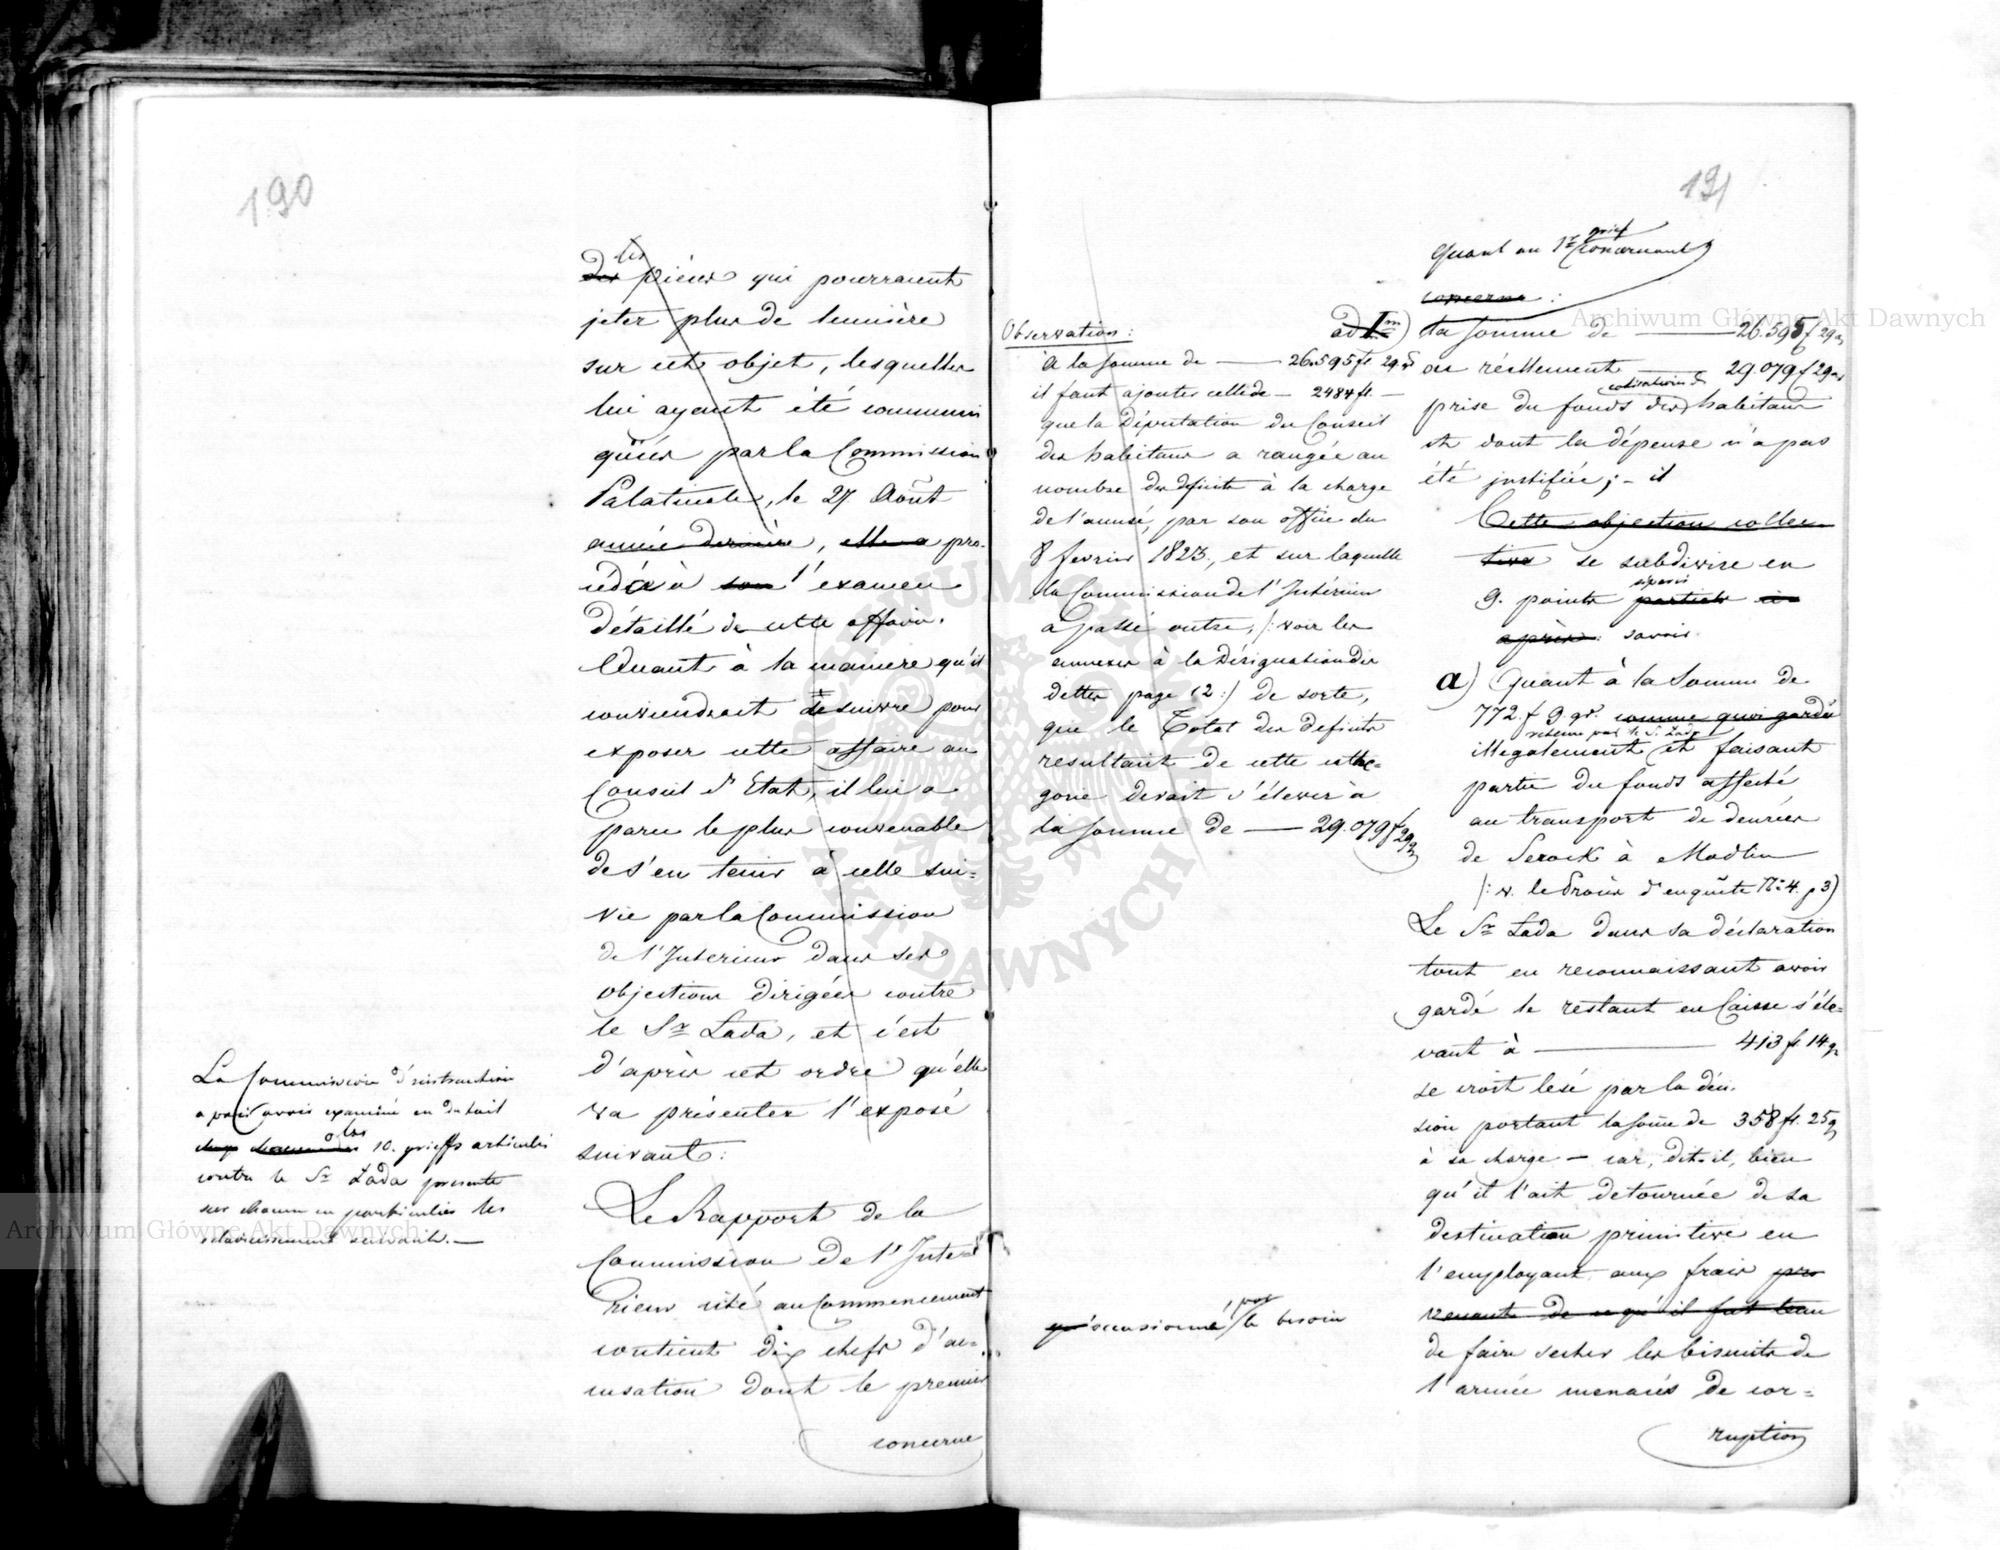 190
les
des pièces qui pourraient
jeter plus de lumière
sur cet objet, lesquelles
lui ayant été communi
quées par la Commission
Palatinale, le 27 Août
année dernière, elle a pro-
cédé à son l'examen
détaillé de cette affaire.
Quant à la maniere qu'il
conviendrait de suivre pour
exposer cette affaire au
Conseil d'Etat, il lui a
paru le plus convenable
de s'en tenir à celle sui=
vie par la Commission
de l'Interieur dans ses
objections dirigées contre
le Sr Lada, et c'est
d'après cet ordre qu'elle
va présenter l'exposé
suivant:
Le Rapport de la
Commission de l'Inte
rieur cité au Commencement
contient dix chefs d'ac=
cusation dont le premier
concerne
La Commission d'instruction
après avoir examiné en détail
les
10. griefs articulés
contre le Sr Lada presente
sur chacun en particulier les
eclaircissements suivants.—
191
grief
Quant au 1r concernant
concerne :
ad Im) la somme de — 26.595 f 29 gr
ou réellement — 29.079 f 29 gr
cotisation de
prise du fonds des habitans
et dont la dépense n'a pas
été justifiée; - il
Cette objection collec
tive se subdivise en
séparés
9. points particls ci
après: savoir.
a) Quant à la Somme de
772. f 9. gr. comme quoi gardée
retenue par le Sr Lada
illegalement et faisant
partie du fonds affecté
au transport de denrées
de Serock à Modlin
(: v. le Procès d'enquête No 4. p 3)
Le Sr Lada dans sa déclaration
tout en reconnaissant avoir
gardé le restant en Caisse s'éle=
vant à — 413 fl. 14 gr
se croit lesé par la déci-
sion portant la some de 358 fl. 25 g
à sa charge — car, dit-il, bien
qu'il l'ait detournée de sa
destination primitive en
l'employant aux frais pro
venants de ce qu'il fut tenu
de faire secher les biscuits de
l'armée menacés de cor=
ruption
Observation:
A la somme de — 26.595 fl. 29 gr
il faut ajouter celle de — 2484 fl. —
que la Députation du Conseil
des habitans a rangée au
nombre des deficits à la charge
de l'accusé, par son office du
8 fevrier 1823., et sur laquelle
la Commission de l'Intérieur
a passé outre, /: voir les
annexes à la Désignation des
dettes page 12 :/ de sorte,
que le Total des deficits
resultant de cette cathé-
gorie devait s'élever à
la somme de — 29.079 f 29 gr
par
qu'occasionné le besoin
Archiwum Główne Akt Dawnych
Archiwum Główne Akt Dawnych
ARCHIWUM GŁÓWNE AKT DAWNYCH